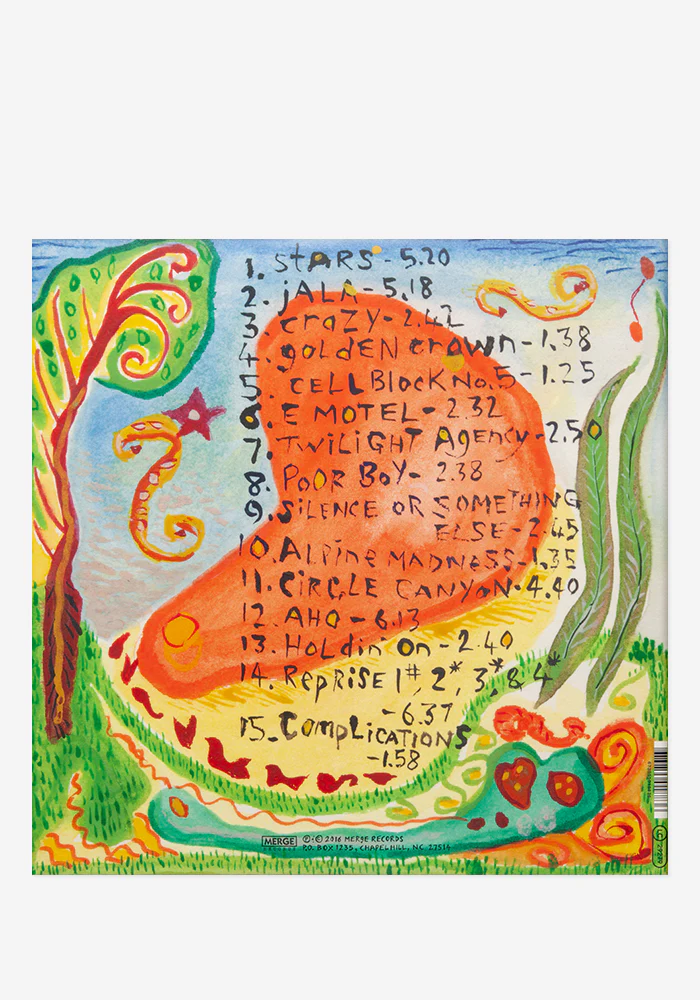 1. STARS - 5.20
2. jALA - 5.18
3. CRAZY - 2.42
4. golDEN CROWN - 1.38
5. CELL BLOCK No. 5 - 1.25
6. E MOTEL - 2.32
7. TWILIGHT Agency - 2.50
8. POOR BOY - 2.38
9. SILENCE OR SOMETHING
ELSE - 2.45
10. ALPINE MADNESS - 1.35
11. CIRCLE CANYON - 4.40
12. AHO - 6.13
13. HOLDIN' ON - 2.40
14. REPRISE 1#, 2*, 3*, & 4*
- 6.37
15. COMPLICATIONS
- 1.58
MERGE
RECORDS
℗ · © 2016 MERGE RECORDS
P.O. BOX 1235, CHAPEL HILL, NC 27514